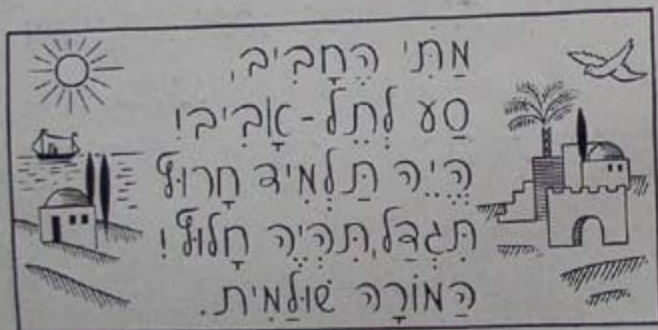 מַתִּי הֶחָבִיב,
סַע לְתֵל-אָבִיב!
הֱיֵה תַּלְמִיד חָרוּץ
תִּגְדַּל, תִּהְיֶה חָלוּץ!
הַמּוֹרָה שׁוּלַמִּית.